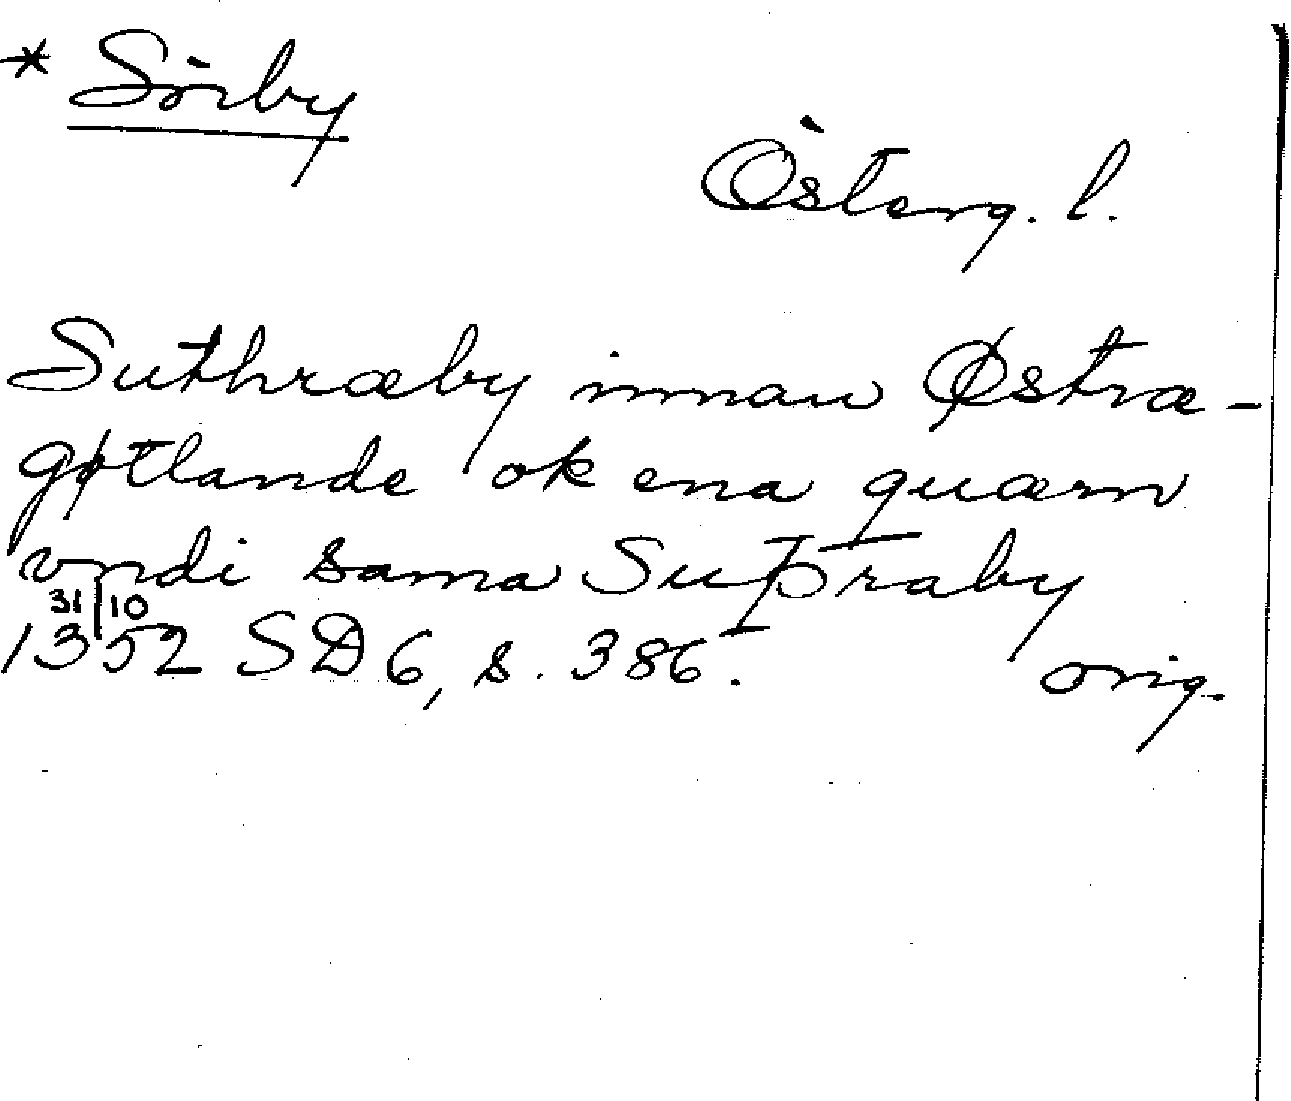 * Sörby
Österg. l.
Suthræby innan Østræ-
gøtlande ok ena quærn
vndi sama Suþraby
31/10
1352 SD 6, s. 386. orig.